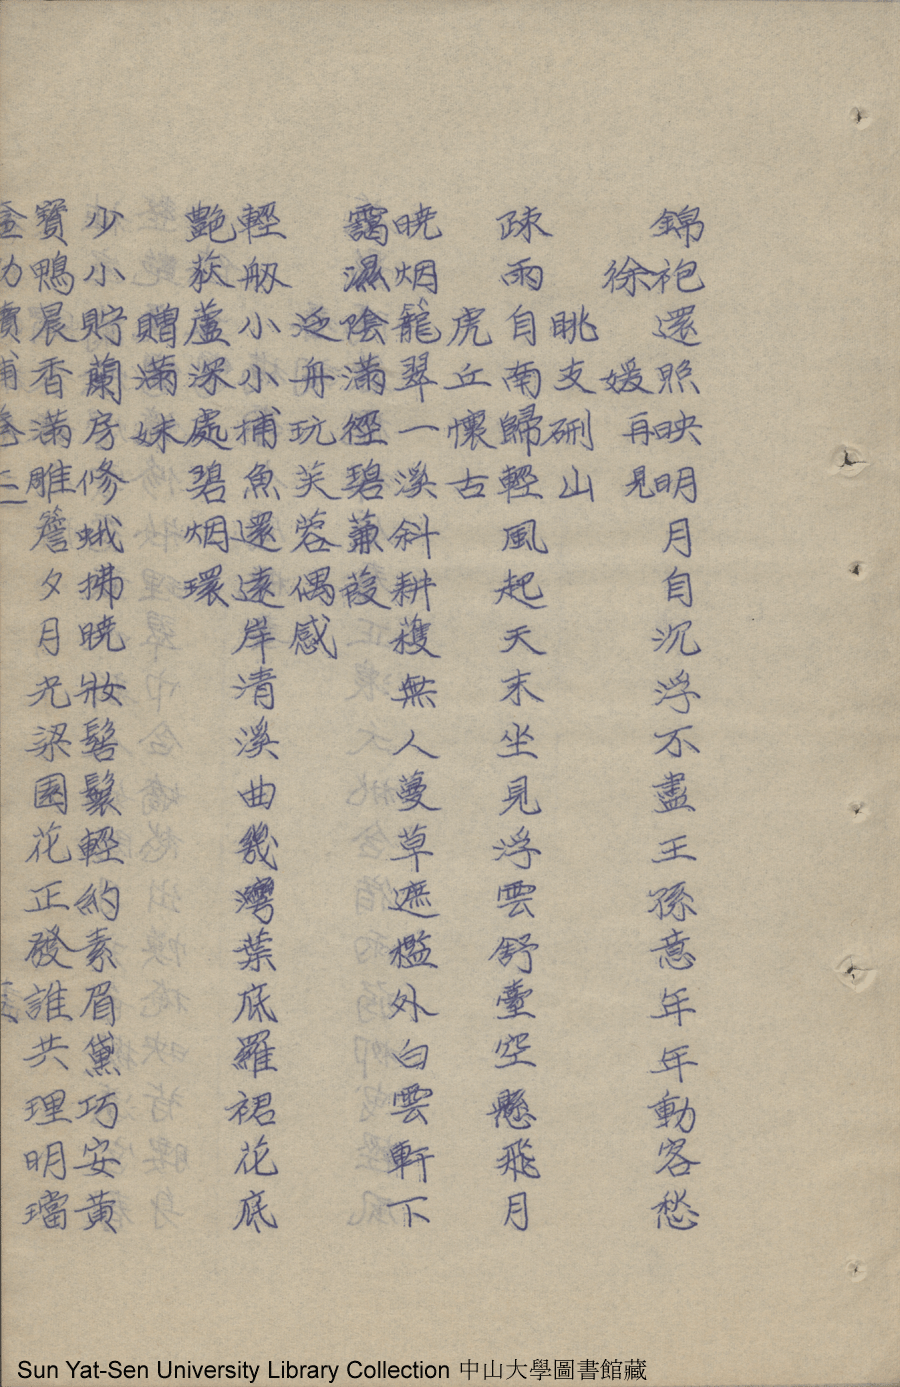 錦袍還照映明月自沉浮不盡王孫意年年動客愁
徐媛再見
眺支硎山
疎雨自南歸輕風起天末坐見浮雲舒臺空懸飛月
虎丘懷古
曉烟籠翠一溪斜耕穫無人蔓草遮檻外白雲軒下
靄濕陰滿徑碧蒹葭
泛舟玩芙蓉偶感
輕舠小小捕魚還遠岸清溪曲幾灣葉底羅裙花底
艷荻蘆深處碧烟環
贈滿妹
少小貯蘭房修蛾拂曉妝髻鬟輕約素眉黛巧安黃
寶鴨晨香滿雕簷夕月光梁園花正發誰共理明璫
Sun Yat-Sen University Library Collection 中山大學圖書館藏